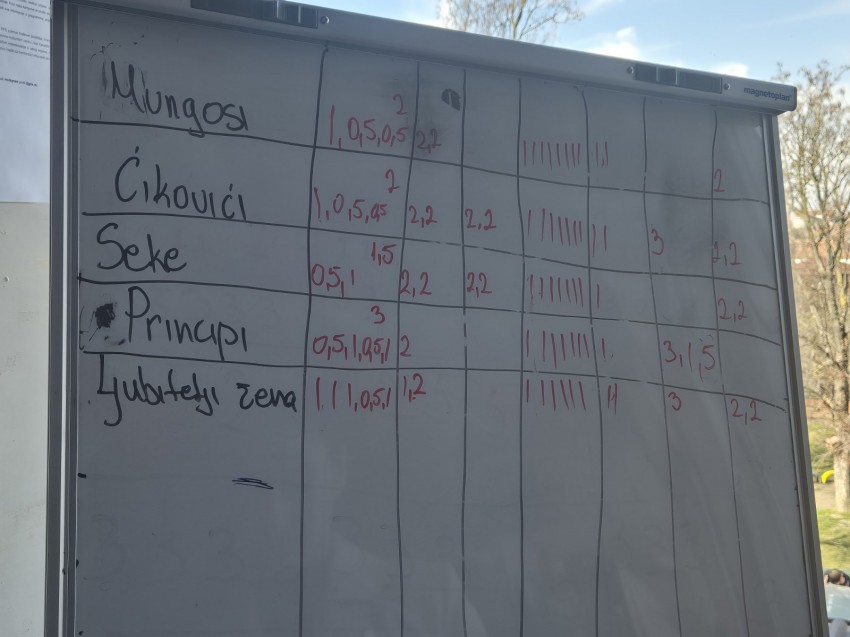 magnetoplan
Mungosi 2 1, 0,5, 0,5 2,2 2
Ćikovići 2 1, 0,5, 0,5 2,2 2,2 3 2,2
Seke 1,5 0,5, 1 2,2 2,2 2,2
Principi 3 0,5, 1, 0,5, 1 2 3, 1,5
Ljubitelji žena 1 1 1, 0,5, 1 1,2 3 2,2